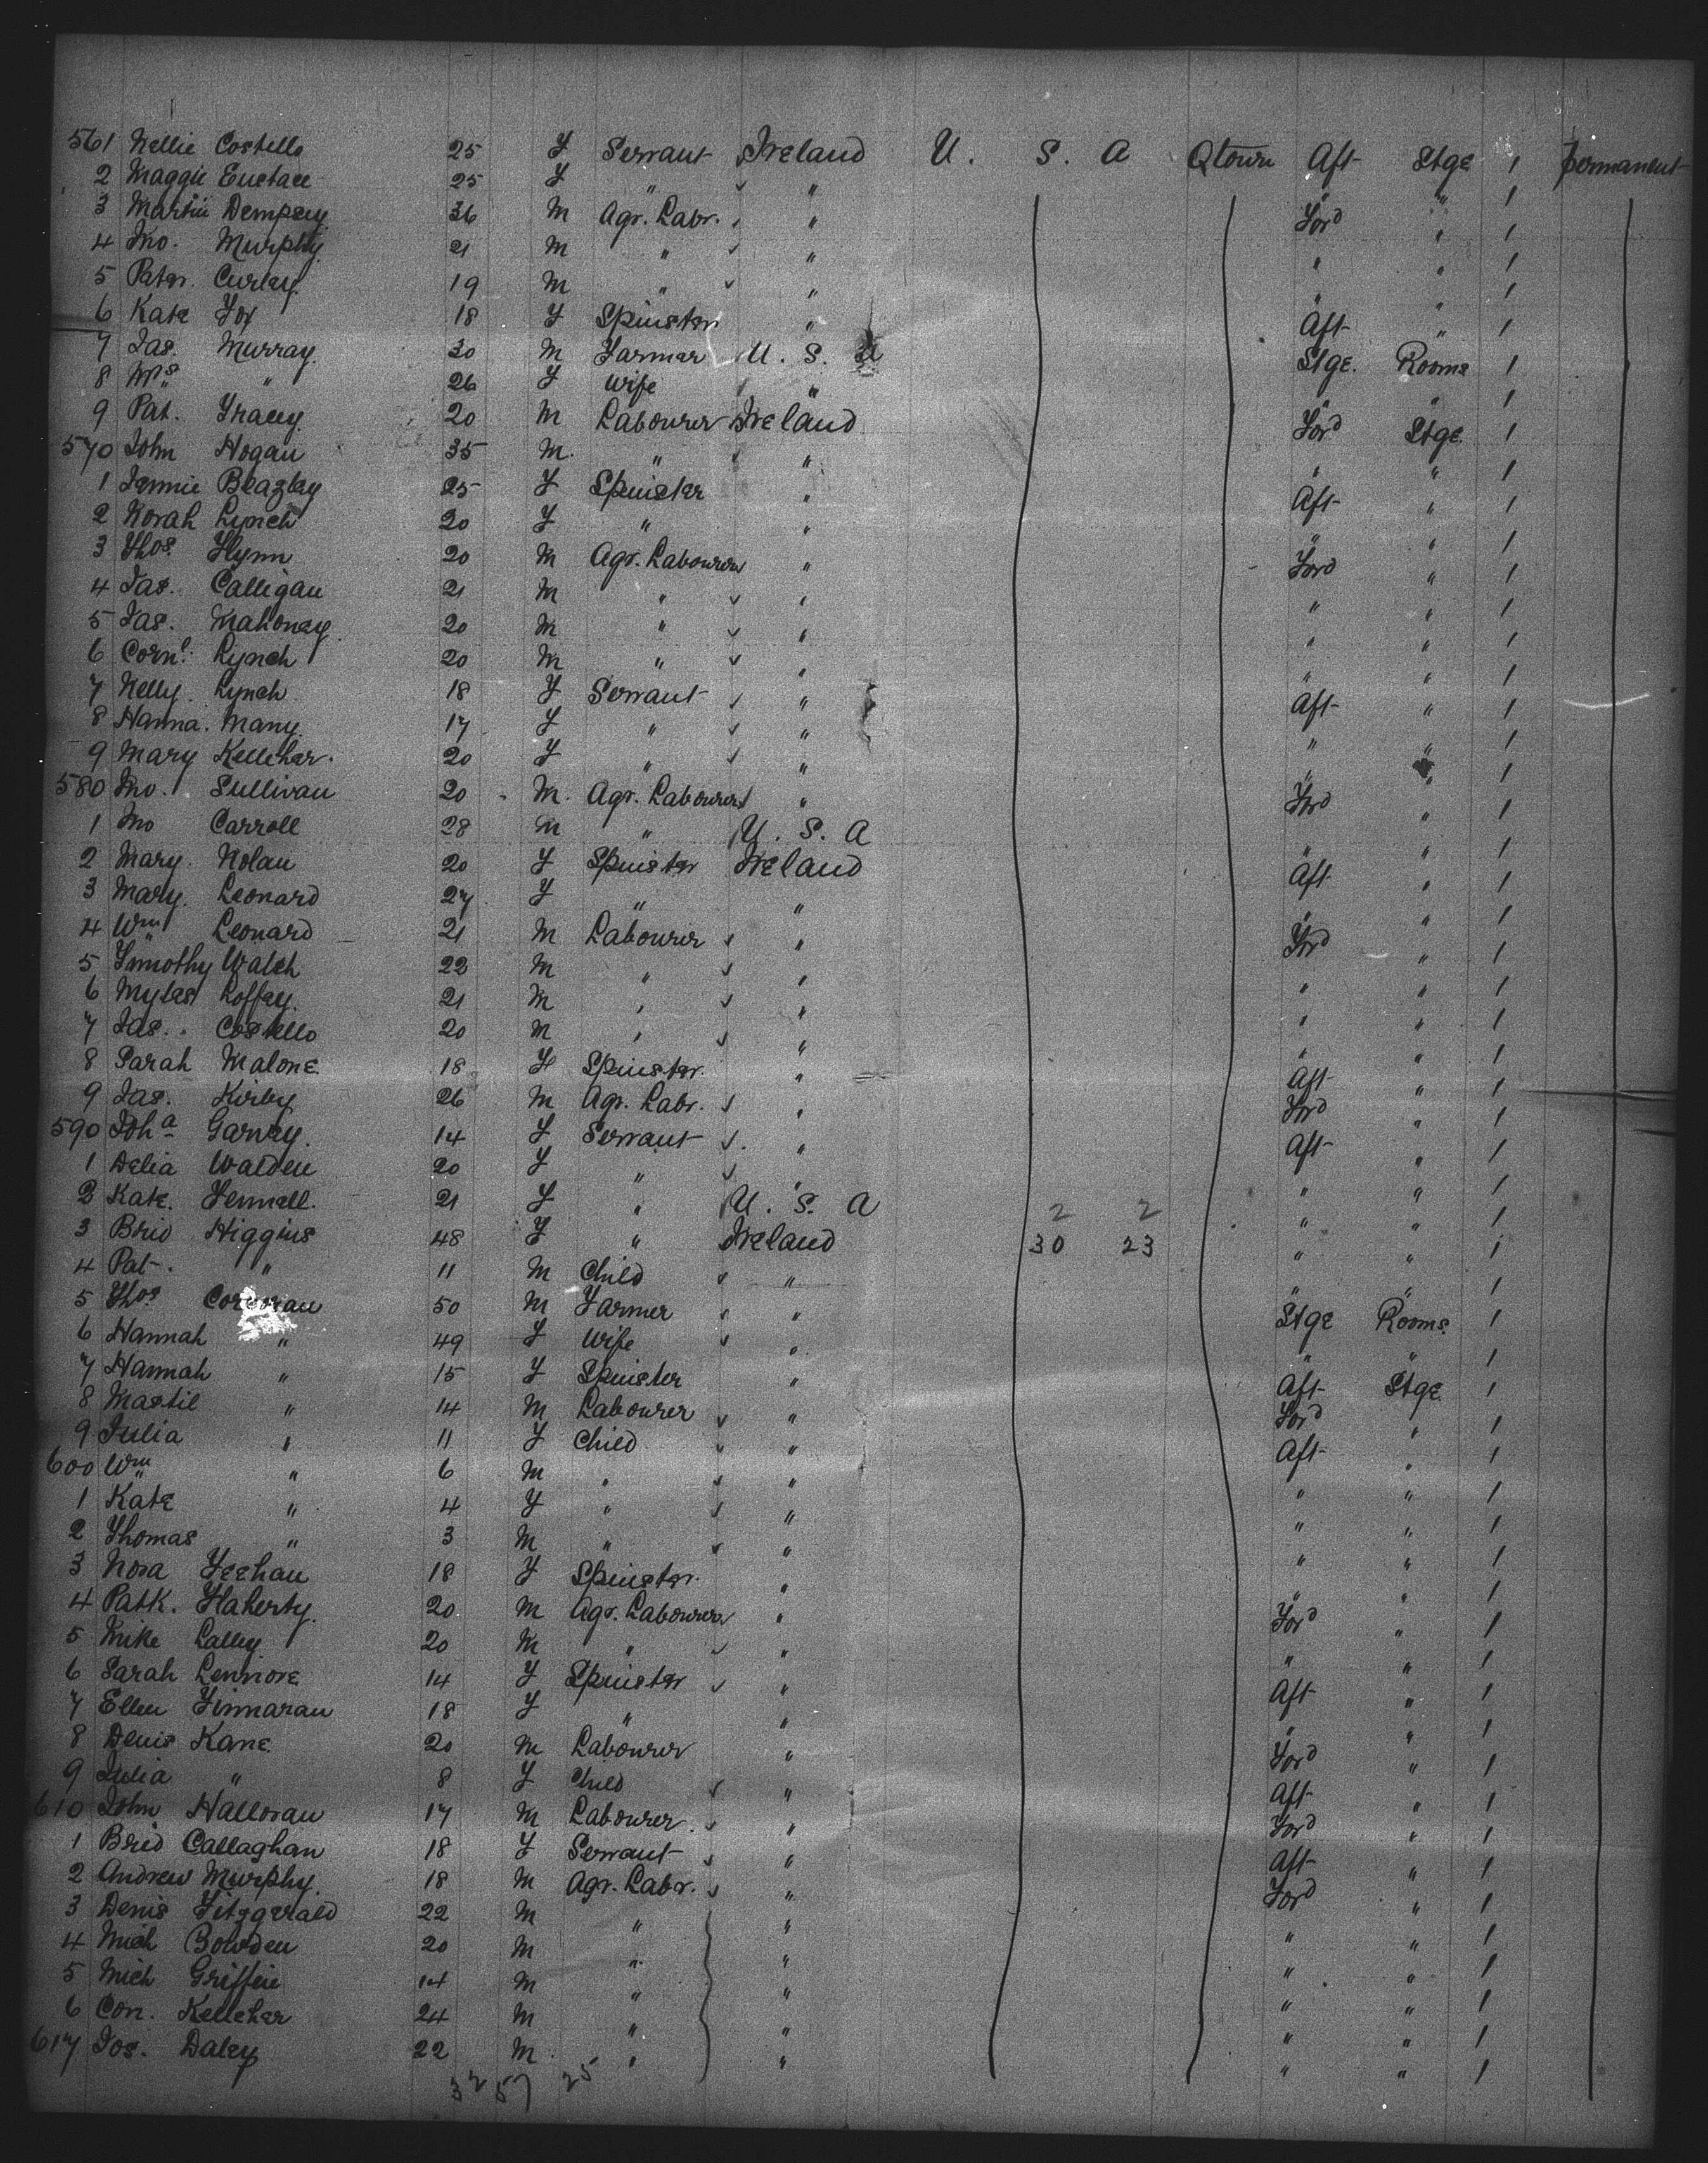 561 Nellie Costello 25 F Servant Ireland U. S. A Qtown Aft Stge 1 permanent
2 Maggie Eustace 25 F " " " " 1
3 Martin Dempsey 36 M Agr. Labr. " Ford " 1
4 Jno. Murphy 21 M " " " " 1
5 Patr. Curley 19 M " " " " 1
6 Kate Fox 18 F Spinster " Aft " 1
7 Jas. Murray 30 M Farmer U. S. A Stge. Rooms 1
8 Mrs " 26 F Wife " " " 1
9 Pat. Tracey 20 M Labourer Ireland Ford Stge 1
570 John Hogan 35 M. " " " " 1
1 Jennie Beazley 25 F Spinster " Aft " 1
2 Norah Lynch 20 F " " " " 1
3 Thos. Flynn 20 M Agr. Labourer " Ford " 1
4 Jas. Calligan 21 M " " " " 1
5 Jas. Mahoney 20 M " " " " 1
6 Cornl. Lynch 20 M " " " " 1
7 Nelly Lynch 18 F Servant " Aft " 1
8 Hanna. Many 17 F " " " " 1
9 Mary Kelleher. 20 F " " " " 1
580 Jno. Sullivan 20 M. Agr. Labourer " Ford " 1
1 Jno Carroll 28 M " U. S. A " " 1
2 Mary. Nolan 20 F Spinster Ireland Aft " 1
3 Mary. Leonard 27 F " " " " 1
4 Wm Leonard 21 M Labourer " Ford " 1
5 Timothy Walsh 22 M " " " " 1
6 Myles Loffey. 21 M " " " " 1
7 Jas. Costello 20 M " " " " 1
8 Sarah Malone 18 F Spinster. " Aft " 1
9 Jas. Kirby 26 M Agr. Labr. " Ford " 1
590 Joha Garvey. 14 F Servant " Aft " 1
1 Delia Walden 20 F " " " " 1
2 Kate. Fennell. 21 F " U. S. A 2 2 " " 1
3 Brid Higgins 48 F " Ireland 30 23 " " 1
4 Pat. " 11 M Child " " " 1
5 Thos. Corcoran 50 M Farmer " Stge Rooms. 1
6 Hannah " 49 F Wife " " " 1
7 Hannah " 15 F Spinster " Aft Stge 1
8 " 14 M Labourer " Ford " 1
9 Julia " 11 F Child " Aft " 1
600 Wm " 6 M " " " " 1
1 Kate " 4 F " " " " 1
2 Thomas " 3 M " " " " 1
3 Nora Feehan 18 F Spinster. " " " 1
4 Patk. Flaherty. 20 M Agr. Labourer " Ford " 1
5 Mike Lalley 20 M " " " " 1
6 Sarah 14 F Spinster " Aft " 1
7 Ellen Finnaran 18 F " " " " 1
8 Denis Kane 20 M Labourer " Ford " 1
9 Julia " 8 F Child " Aft " 1
610 John Halloran 17 M Labourer. " Ford " 1
1 Brid Callaghan 18 F Servant " Aft " 1
2 Andrew Murphy. 18 M Agr. Labr. " Ford " 1
3 Denis Fitzgerald 22 M " " " " 1
4 Mich Bowden 20 M " " " " 1
5 Mich Griffin 14 M " " " " 1
6 Con. Kelleher 24 M " " " " 1
617 Jos. Daley 22 M. " " " " 1
32 57 25